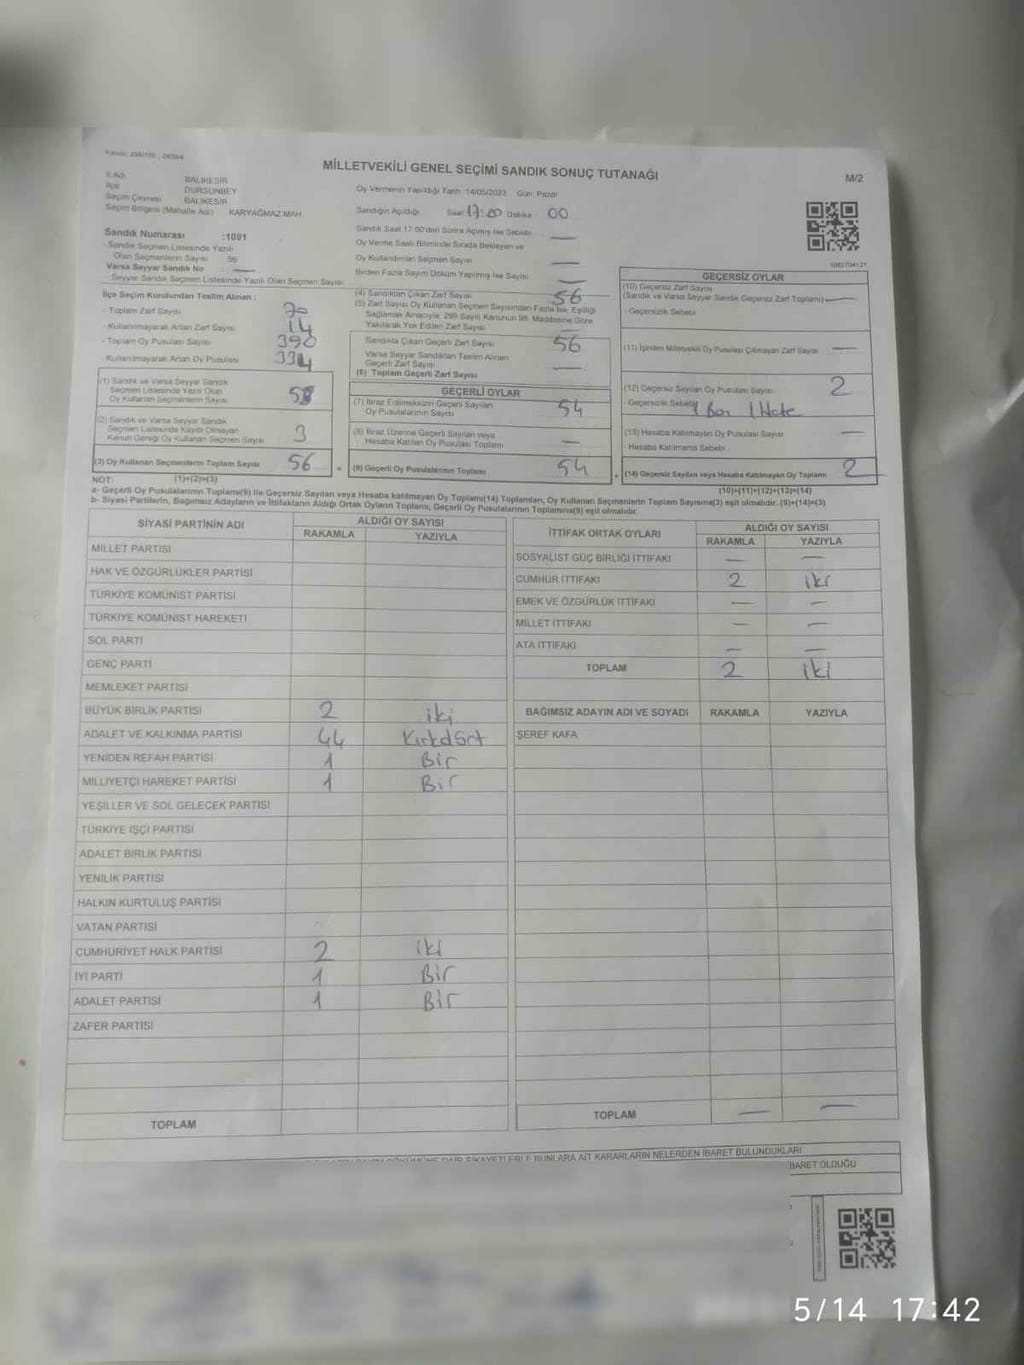 MİLLETVEKİLİ GENEL SEÇİMİ SANDIK SONUÇ TUTANAĞI
M/2
İl Adı BALIKESİR
İlçe DURSUNBEY
Seçim Çevresi BALIKESİR
Seçim Bölgesi (Mahalle Adı) KARYAĞMAZ MAH.
Sandık Numarası :1091
- Sandık Seçmen Listesinde Yazılı
Olan Seçmenlerin Sayısı 56
Varsa Seyyar Sandık No —
- Seyyar Sandık Seçmen Listesinde Yazılı Olan Seçmen Sayısı
İlçe Seçim Kurulundan Teslim Alınan :
- Toplam Zarf Sayısı 70
- Kullanılmayarak Artan Zarf Sayısı 14
- Toplam Oy Pusulası Sayısı 390
- Kullanılmayarak Artan Oy Pusulası 334
(1) Sandık ve Varsa Seyyar Sandık
Seçmen Listesinde Yazılı Olup
Oy Kullanan Seçmenlerin Sayısı
(2) Sandık ve Varsa Seyyar Sandık
Seçmen Listesinde Kaydı Olmayan
Kanun Gereği Oy Kullanan Seçmen Sayısı 3
(3) Oy Kullanan Seçmenlerin Toplam Sayısı 56
(1)+(2)=(3)
Oy Vermenin Yapıldığı Tarih :14/05/2023 Gün: Pazar
Sandığın Açıldığı Saat 17:00 Dakika 00
Sandık Saat 17:00'den Sonra Açılmış İse Sebebi —
Oy Verme Saati Bitiminde Sırada Bekleyen ve
Oy Kullandırılan Seçmen Sayısı —
Birden Fazla Sayım Döküm Yapılmış İse Sayısı —
(4) Sandıktan Çıkan Zarf Sayısı 56
(5) Zarf Sayısı Oy Kullanan Seçmen Sayısından Fazla İse, Eşitliği
Sağlamak Amacıyla, 298 Sayılı Kanunun 98. Maddesine Göre
Yakılarak Yok Edilen Zarf Sayısı —
Sandıkta Çıkan Geçerli Zarf Sayısı 56
Varsa Seyyar Sandıktan Teslim Alınan
Geçerli Zarf Sayısı —
(6) Toplam Geçerli Zarf Sayısı
GEÇERLİ OYLAR
(7) İtiraz Edilmeksizin Geçerli Sayılan
Oy Pusulalarının Sayısı 54
(8) İtiraz Üzerine Geçerli Sayılan veya
Hesaba Katılan Oy Pusulası Toplamı —
(9) Geçerli Oy Pusulalarının Toplamı 54
GEÇERSİZ OYLAR
(10) Geçersiz Zarf Sayısı
(Sandık ve Varsa Seyyar Sandık Geçersiz Zarf Toplamı) —
- Geçersizlik Sebebi
(11) İçinden Milletvekili Oy Pusulası Çıkmayan Zarf Sayısı —
(12) Geçersiz Sayılan Oy Pusulası Sayısı 2
- Geçersizlik Sebebi
(13) Hesaba Katılmayan Oy Pusulası Sayısı —
- Hesaba Katılmama Sebebi
(14) Geçersiz Sayılan veya Hesaba Katılmayan Oy Toplamı 2
(10)+(11)+(12)+(13)=(14)
NOT:
a- Geçerli Oy Pusulalarının Toplamı(9) ile Geçersiz Sayılan veya Hesaba katılmayan Oy Toplamı(14) Toplamları, Oy Kullanan Seçmenlerin Toplam Sayısına(3) eşit olmalıdır. (9)+(14)=(3)
b- Siyasi Partilerin, Bağımsız Adayların ve İttifakların Aldığı Ortak Oyların Toplamı, Geçerli Oy Pusulalarının Toplamına(9) eşit olmalıdır.
SİYASİ PARTİNİN ADI ALDIĞI OY SAYISI
RAKAMLA YAZIYLA
MİLLET PARTİSİ
HAK VE ÖZGÜRLÜKLER PARTİSİ
TÜRKİYE KOMÜNİST PARTİSİ
TÜRKİYE KOMÜNİST HAREKETİ
SOL PARTİ
GENÇ PARTİ
MEMLEKET PARTİSİ
BÜYÜK BİRLİK PARTİSİ 2 iki
ADALET VE KALKINMA PARTİSİ 44 Kırkdört
YENİDEN REFAH PARTİSİ 1 Bir
MİLLİYETÇİ HAREKET PARTİSİ 1 Bir
YEŞİLLER VE SOL GELECEK PARTİSİ
TÜRKİYE İŞÇİ PARTİSİ
ADALET BİRLİK PARTİSİ
YENİLİK PARTİSİ
HALKIN KURTULUŞ PARTİSİ
VATAN PARTİSİ
CUMHURİYET HALK PARTİSİ 2 iki
İYİ PARTİ 1 Bir
ADALET PARTİSİ 1 Bir
ZAFER PARTİSİ
TOPLAM
İTTİFAK ORTAK OYLARI ALDIĞI OY SAYISI
RAKAMLA YAZIYLA
SOSYALİST GÜÇ BİRLİĞİ İTTİFAKI — —
CUMHUR İTTİFAKI 2 iki
EMEK VE ÖZGÜRLÜK İTTİFAKI — —
MİLLET İTTİFAKI — —
ATA İTTİFAKI — —
TOPLAM 2 iki
BAĞIMSIZ ADAYIN ADI VE SOYADI RAKAMLA YAZIYLA
ŞEREF KAFA
TOPLAM — —
ŞİKAYETLERLE BUNLARA AİT KARARLARIN NELERDEN İBARET BULUNDUKLARI
İBARET OLDUĞU
5/14 17:42